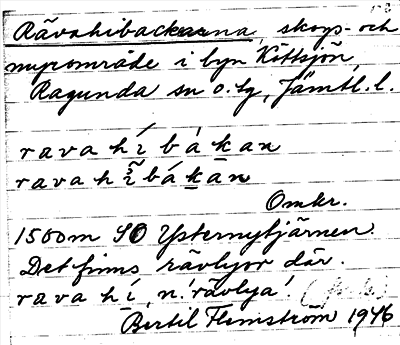 Rävahibackarna, skogs- och
myrområde i byn Köttsjön,
Ragunda sn o. tg, Jämtl. l.
rava hí bákan
rava hí̃ bákan
Omkr.
1500m SO Ysternytjärnen.
Det finns rävlyor där.
rava hí, n. 'rävlya'.
Bertil Flemström 1946